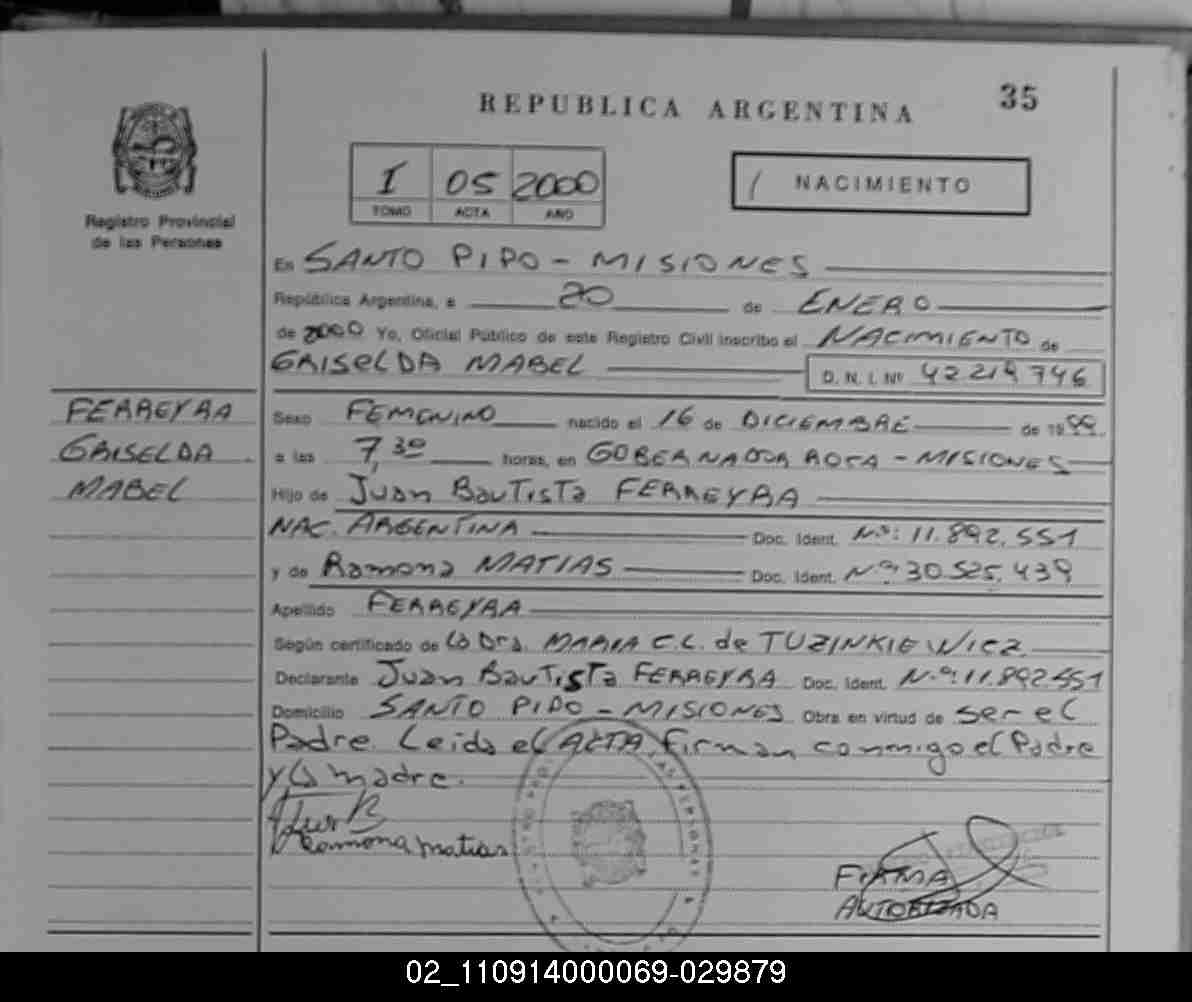 REPUBLICA ARGENTINA
35
I 05 2000
TOMO ACTA AÑO
NACIMIENTO
Registro Provincial
de las Personas
En SANTO PIPO - MISIONES
República Argentina, a 20 de ENERO
de 2000 Yo, Oficial Público de este Registro Civil inscribo el NACIMIENTO de
GRISELDA MABEL D. N. I. Nº 42219746
FERREYRA
GRISELDA
MABEL
Sexo FEMENINO nacido el 16 de DICIEMBRE de 1999.
a las 7,30 horas, en GOBERNADOR ROCA - MISIONES
Hijo de Juan BauTista FERREYRA
NAC. ARGENTINA Doc. Ident. Nº: 11.892.551
y de Ramona MATIAS Doc. Ident. Nº 30.525.439
Apellido FERREYRA
Según certificado de La Dra. MARIA C.L. de TUZINKIEWICZ
Declarante Juan BauTisTa FERREYRA Doc. Ident. N.º: 11.892.551
Domicilio SANTO PIPO - MISIONES Obra en virtud de ser el
Padre. Leida el ACTA, firman conmigo el Padre
y La madre.
Ramona matias
FIRMA
AUTORIZADA
02_110914000069-029879